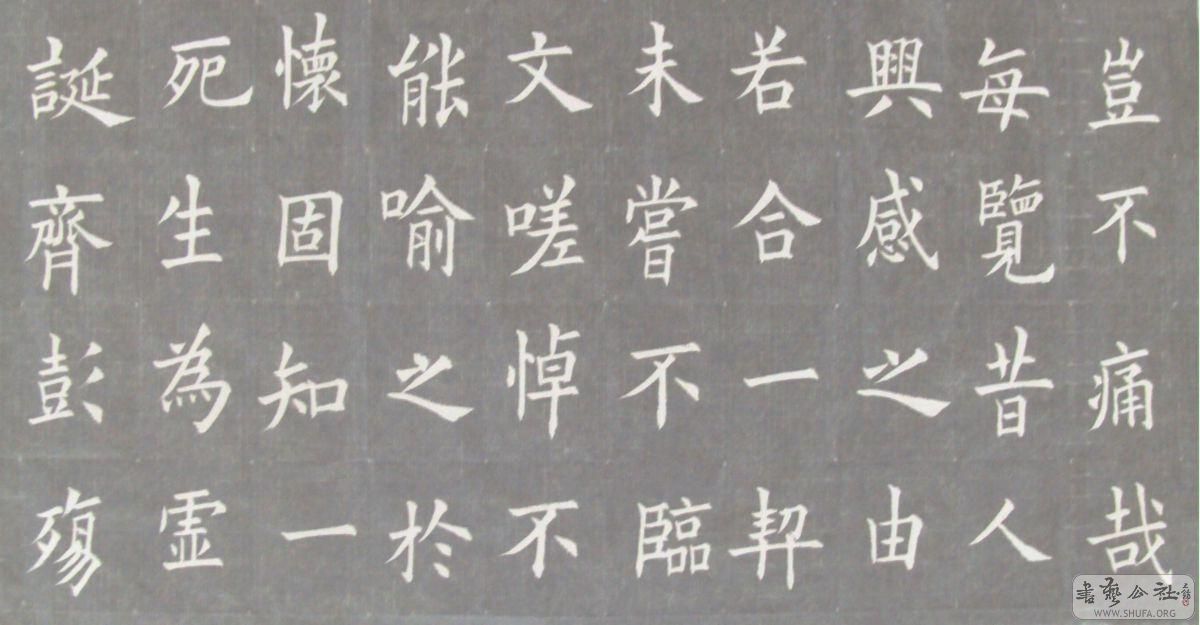 豈不痛哉
每覽昔人
興感之由
若合一契
未嘗不臨
文嗟悼不
能喻之於
懷固知一
死生為虛
誕齊彭殤
書藝公社
WWW.SHUFA.ORG